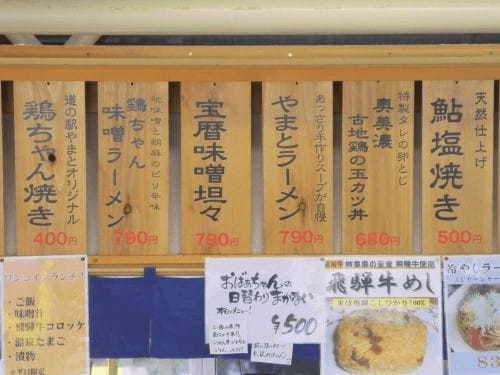 天然仕上げ
鮎塩焼き
500円
特製タレの卵とじ
奥美濃
古地鶏の玉カツ丼
680円
あっさり手作りスープが自慢
やまとラーメン
790円
宝暦味噌坦々
790円
鶏ちゃん
味噌ラーメン
790円
道の駅やまとオリジナル
鶏ちゃん焼き
400円
ワンコインランチ!
・ご飯
・味噌汁
・飛騨牛コロッケ
・温泉たまご
・漬物
おばあちゃんの
日替わりまかない
¥500
飛騨牛めし
冷やしラーメン